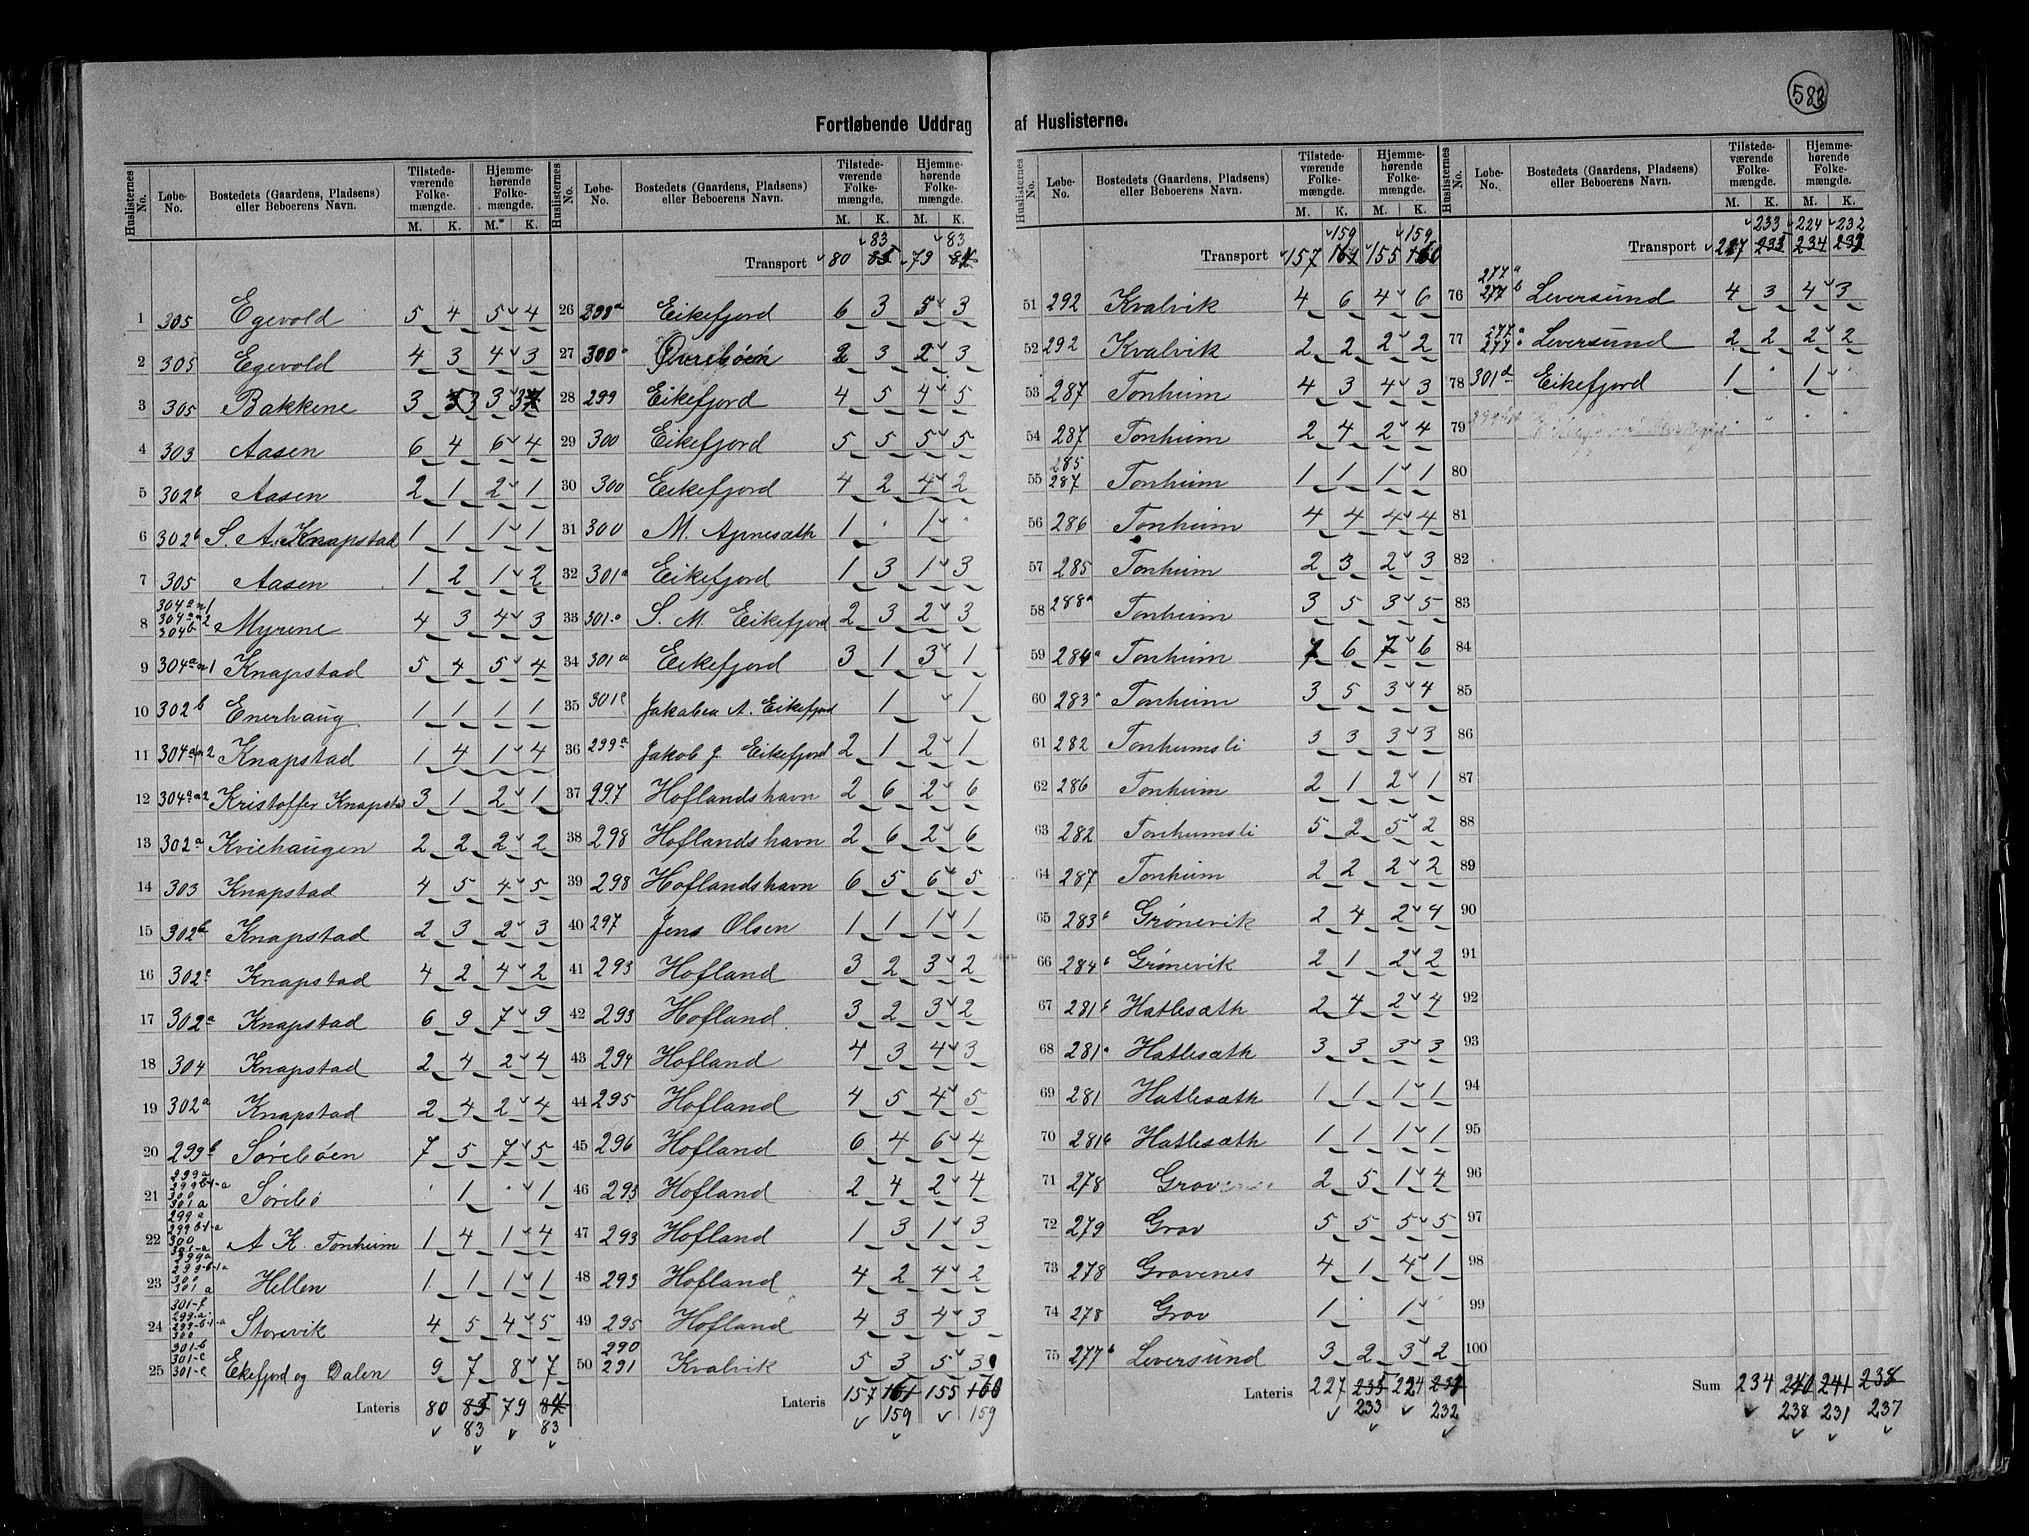 583
Fortløbende Uddrag af Huslisterne.
Huslisternes No. | Løbe-No. | Bostedets (Gaardens, Pladsens) eller Beboerens Navn. | Tilstedeværende Folkemængde. M. K. | Hjemmehørende Folkemængde. M. K.
1 305 Egevold 5 4 5 4
2 305 Egevold 4 3 4 3
3 305 Bakkene 3 3 3 3
4 303 Aasen 6 4 6 4
5 302b Aasen 2 1 2 1
6 302b S. A. Knapstad 1 1 1 1
7 305 Aasen 1 2 1 2
8 304a-1 304a-2 304b Myrene 4 3 4 3
9 304a-1 Knapstad 5 4 5 4
10 302b Enerhaug 1 1 1 1
11 304a-2 Knapstad 1 4 1 4
12 304a-2 Kristoffer Knapstad 3 1 2 1
13 302a Kviehaugen 2 2 2 2
14 303 Knapstad 4 5 4 5
15 302a Knapstad 2 3 2 3
16 302a Knapstad 4 2 4 2
17 302a Knapstad 6 9 7 9
18 304 Knapstad 2 4 2 4
19 302a Knapstad 2 4 2 4
20 299b Sørebøen 7 5 7 5
21 299a 299b-1-a 300 301a Sørebø " 1 " 1
22 299a 299b-1-a 300 301-a A. K. Tonheim 1 4 1 4
23 299a 299-b-1a 300 301a Hellen 1 1 1 1
24 301-f 299-a 299-b-1-a 300 Storevik 4 5 4 5
25 301-b 301-c 301-e Eikefjord og Dalen 9 7 8 7
Lateris 80 85 79 84
83 83
Transport 80 85 79 84
83 83
26 299a Eikefjord 6 3 5 3
27 300 Øvrebøen 2 3 2 3
28 299 Eikefjord 4 5 4 5
29 300 Eikefjord 5 5 5 5
30 300 Eikefjord 4 2 4 2
31 300 M. Apnesæth 1 " 1 "
32 301a Eikefjord 1 3 1 3
33 301 S. M. Eikefjord 2 3 2 3
34 301a Eikefjord 3 1 3 1
35 301c Jakobea A. Eikefjord 1 1
36 299a Jakob J. Eikefjord 2 1 2 1
37 297 Hoflandshavn 2 6 2 6
38 298 Hoflandshavn 2 6 2 6
39 298 Hoflandshavn 6 5 6 5
40 297 Jens Olsen 1 1 1 1
41 293 Hofland 3 2 3 2
42 293 Hofland 3 2 3 2
43 294 Hofland 4 3 4 3
44 295 Hofland 4 5 4 5
45 296 Hofland 6 4 6 4
46 295 Hofland 2 4 2 4
47 293 Hofland 1 3 1 3
48 293 Hofland 4 2 4 2
49 295 Hofland 4 3 4 3
50 290 291 Kvalvik 5 3 5 3
Lateris 157 161 155 160
159 159
Transport 157 161 155 160
159 159
51 292 Kvalvik 4 6 4 6
52 292 Kvalvik 2 2 2 2
53 287 Tonheim 4 3 4 3
54 287 Tonheim 2 4 2 4
55 285 287 Tonheim 1 1 1 1
56 286 Tonheim 4 4 4 4
57 285 Tonheim 2 3 2 3
58 288a Tonheim 3 5 3 5
59 284a Tonheim 7 6 7 6
60 283a Tonheim 3 5 3 4
61 282 Tonheimsli 3 3 3 3
62 286 Tonheim 2 1 2 1
63 282 Tonheimsli 5 2 5 2
64 287 Tonheim 2 2 2 2
65 283b Grønevik 2 4 2 4
66 284b Grønevik 2 1 2 2
67 281b Hatlesæth 2 4 2 4
68 281a Hatlesæth 3 3 3 3
69 281 Hatlesæth 1 1 1 1
70 281b Hatlesæth 1 1 1 1
71 278 Grovenes 2 5 1 4
72 279 Grov 5 5 5 5
73 278 Grovenes 4 1 4 1
74 278 Grov 1 " 1 "
75 277b Leversund 3 2 3 2
Lateris 227 235 224 232
233 232
Transport 227 235 234 232
233 224 232
76 277a 277b Leversund 4 3 4 3
77 277a 277 Leversund 2 2 2 2
78 301d Eikefjord 1 " 1 "
79 " " "
80
81
82
83
84
85
86
87
88
89
90
91
92
93
94
95
96
97
98
99
100
Sum 234 240 241 238
238 231 237